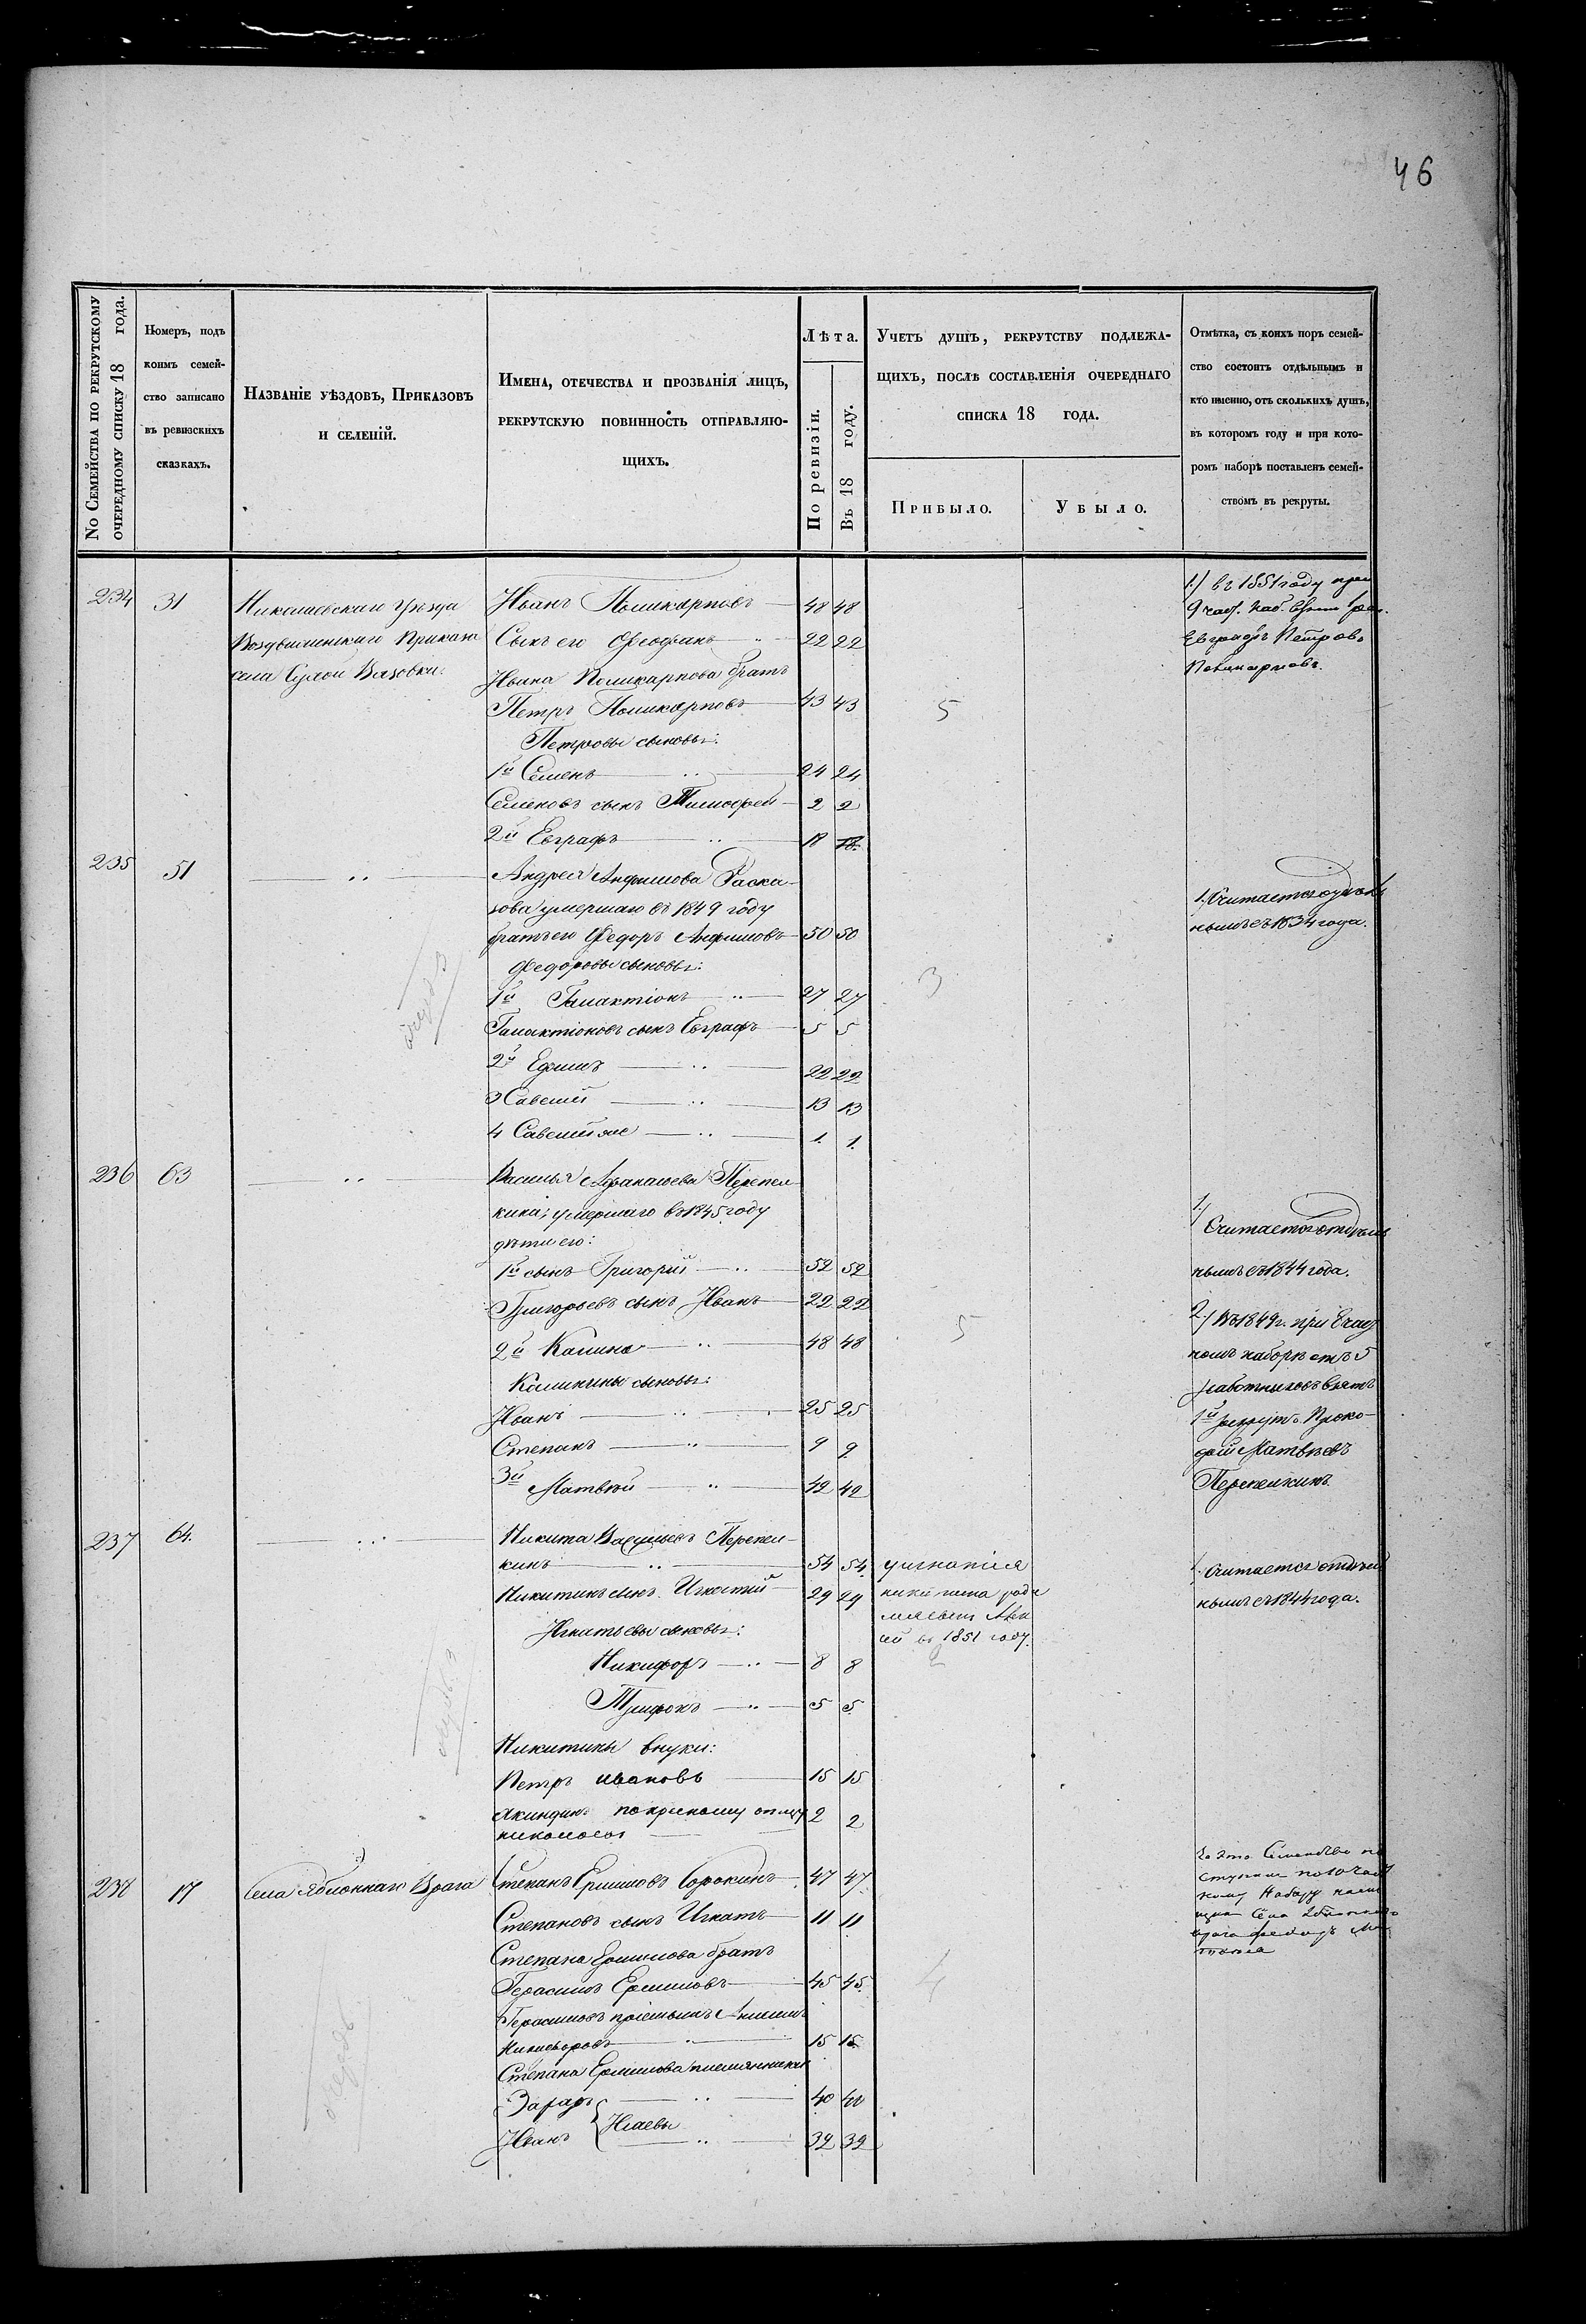 46
№ Семейства по рекрутскому очередному списку 18 года.
Номеръ, подъ
коимъ семей-
ство записано
въ ревизскихъ
сказкахъ.
Названіе уѣздовъ, Приказовъ
и селеній.
Имена, отечества и прозванія лицъ,
рекрутскую повинность отправляю-
щихъ.
Лѣта.
По ревизіи.
Въ 18 году.
Учетъ душъ, рекрутству подлежа-
щихъ, послѣ составленія очереднаго
списка 18 года.
Прибыло.
Убыло.
Отмѣтка, съ коихъ поръ семей-
ство состоитъ отдѣльнымъ и
кто именно, отъ сколькихъ душъ,
въ которомъ году и при кото-
ромъ наборѣ поставленъ семей-
ствомъ въ рекруты.
234 31 Николаевскаго Уѣзда Иванъ Поликарповъ 48 48
Воздвиженскаго Приказа Сынъ его Феофанъ 22 22
села Сухой Вязовки. Ивана Поликарпова братъ
Петръ Поликарповъ 43 43 5
Петровы сыновья:
1й Семенъ 24 24
Семеновъ сынъ Тимофей 2 2
2й Евграфъ 18 18
1) въ 1851 году при
9 част. наб.
Евграфъ Петровъ
Поликарповъ.
235 51 Андрея Анфимова Раска-
зова умершаго въ 1849 году
братъ его Федоръ Анфимовъ 50 50
Федоровы сыновья:
1й Галактіонъ 27 27 3
Галактіоновъ сынъ Евграфъ 5 5
2й Ефимъ 22 22
3 Савелій 13 13
4 Савелій же 1 1
1) Считается отдѣль
нымъ съ 1834 года.
236 63 Василья Афанасьева Перепел
кина, умершаго въ 1845 году
дѣти его:
1й сынъ Григорій 52 52
Григорьевъ сынъ Иванъ 22 22
2й Калина 48 48 5
Калинины сыновья:
Иванъ 25 25
Степанъ 9 9
3й Матвѣй 42 42
1) Считается отдѣль
нымъ съ 1844 года.
2) Въ 1849 г. при 8 част
номъ наборѣ отъ 5
работниковъ взятъ
1й рекрутъ Проко-
фій Матвѣевъ
Перепелкинъ.
237 64. Никита Васильевъ Перепел
кинъ 54 54
Никитинъ сынъ Игнатій 29 29
Игнатьевы сыновья:
Никифоръ 8 8
Трифонъ 5 5
Никитины внуки:
Петръ Ивановъ 15 15
Акиндинъ по крестному отцу 2 2
Николаевъ
у Игнатія
Никитина роди
лся сынъ
въ 1851 году.
2
1. Считается отдѣль
нымъ съ 1844 года.
238 17 Села Яблоннаго Врага Степанъ Ермиловъ Сорокинъ 47 47
Степановъ сынъ Игнатъ 11 11
Степана Ермилова братъ
Герасимъ Ермиловъ 45 45 4
Герасимовъ пріемышъ Акимъ
Никифоровъ 15 15
Степана Ермилова племянники
Захаръ 40 40
Иванъ Исаевы 39 39
За это Семейство по
ступилъ по 10 част
ному Набору
Села Яблоннаго
врага